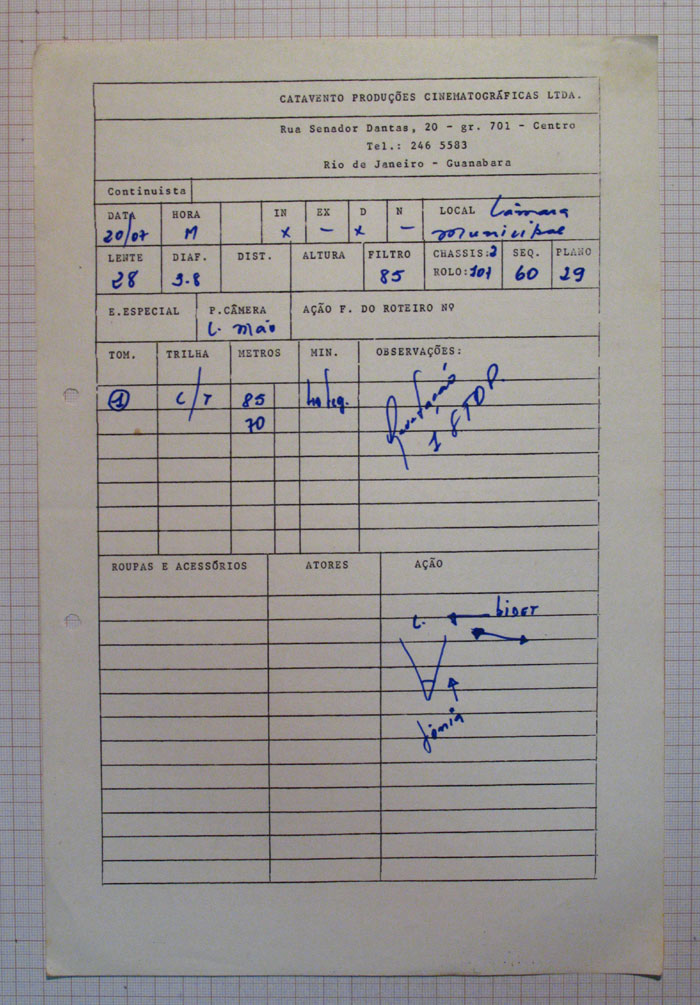 CATAVENTO PRODUÇÕES CINEMATOGRÁFICAS LTDA.
Rua Senador Dantas, 20 - gr. 701 - Centro
Tel.: 246 5583
Rio de Janeiro - Guanabara
Continuista
DATA HORA IN EX D N LOCAL Câmara
20/07 M x - x - Municipal
LENTE DIAF. DIST. ALTURA FILTRO CHASSIS:2 SEQ. PLANO
28 3.8 85 ROLO:101 60 29
E.ESPECIAL P.CÂMERA AÇÃO F. DO ROTEIRO Nº
C. mão
TOM. TRILHA METROS MIN. OBSERVAÇÕES:
1 C/T 85
70
ROUPAS E ACESSÓRIOS ATORES AÇÃO
L. BIDET